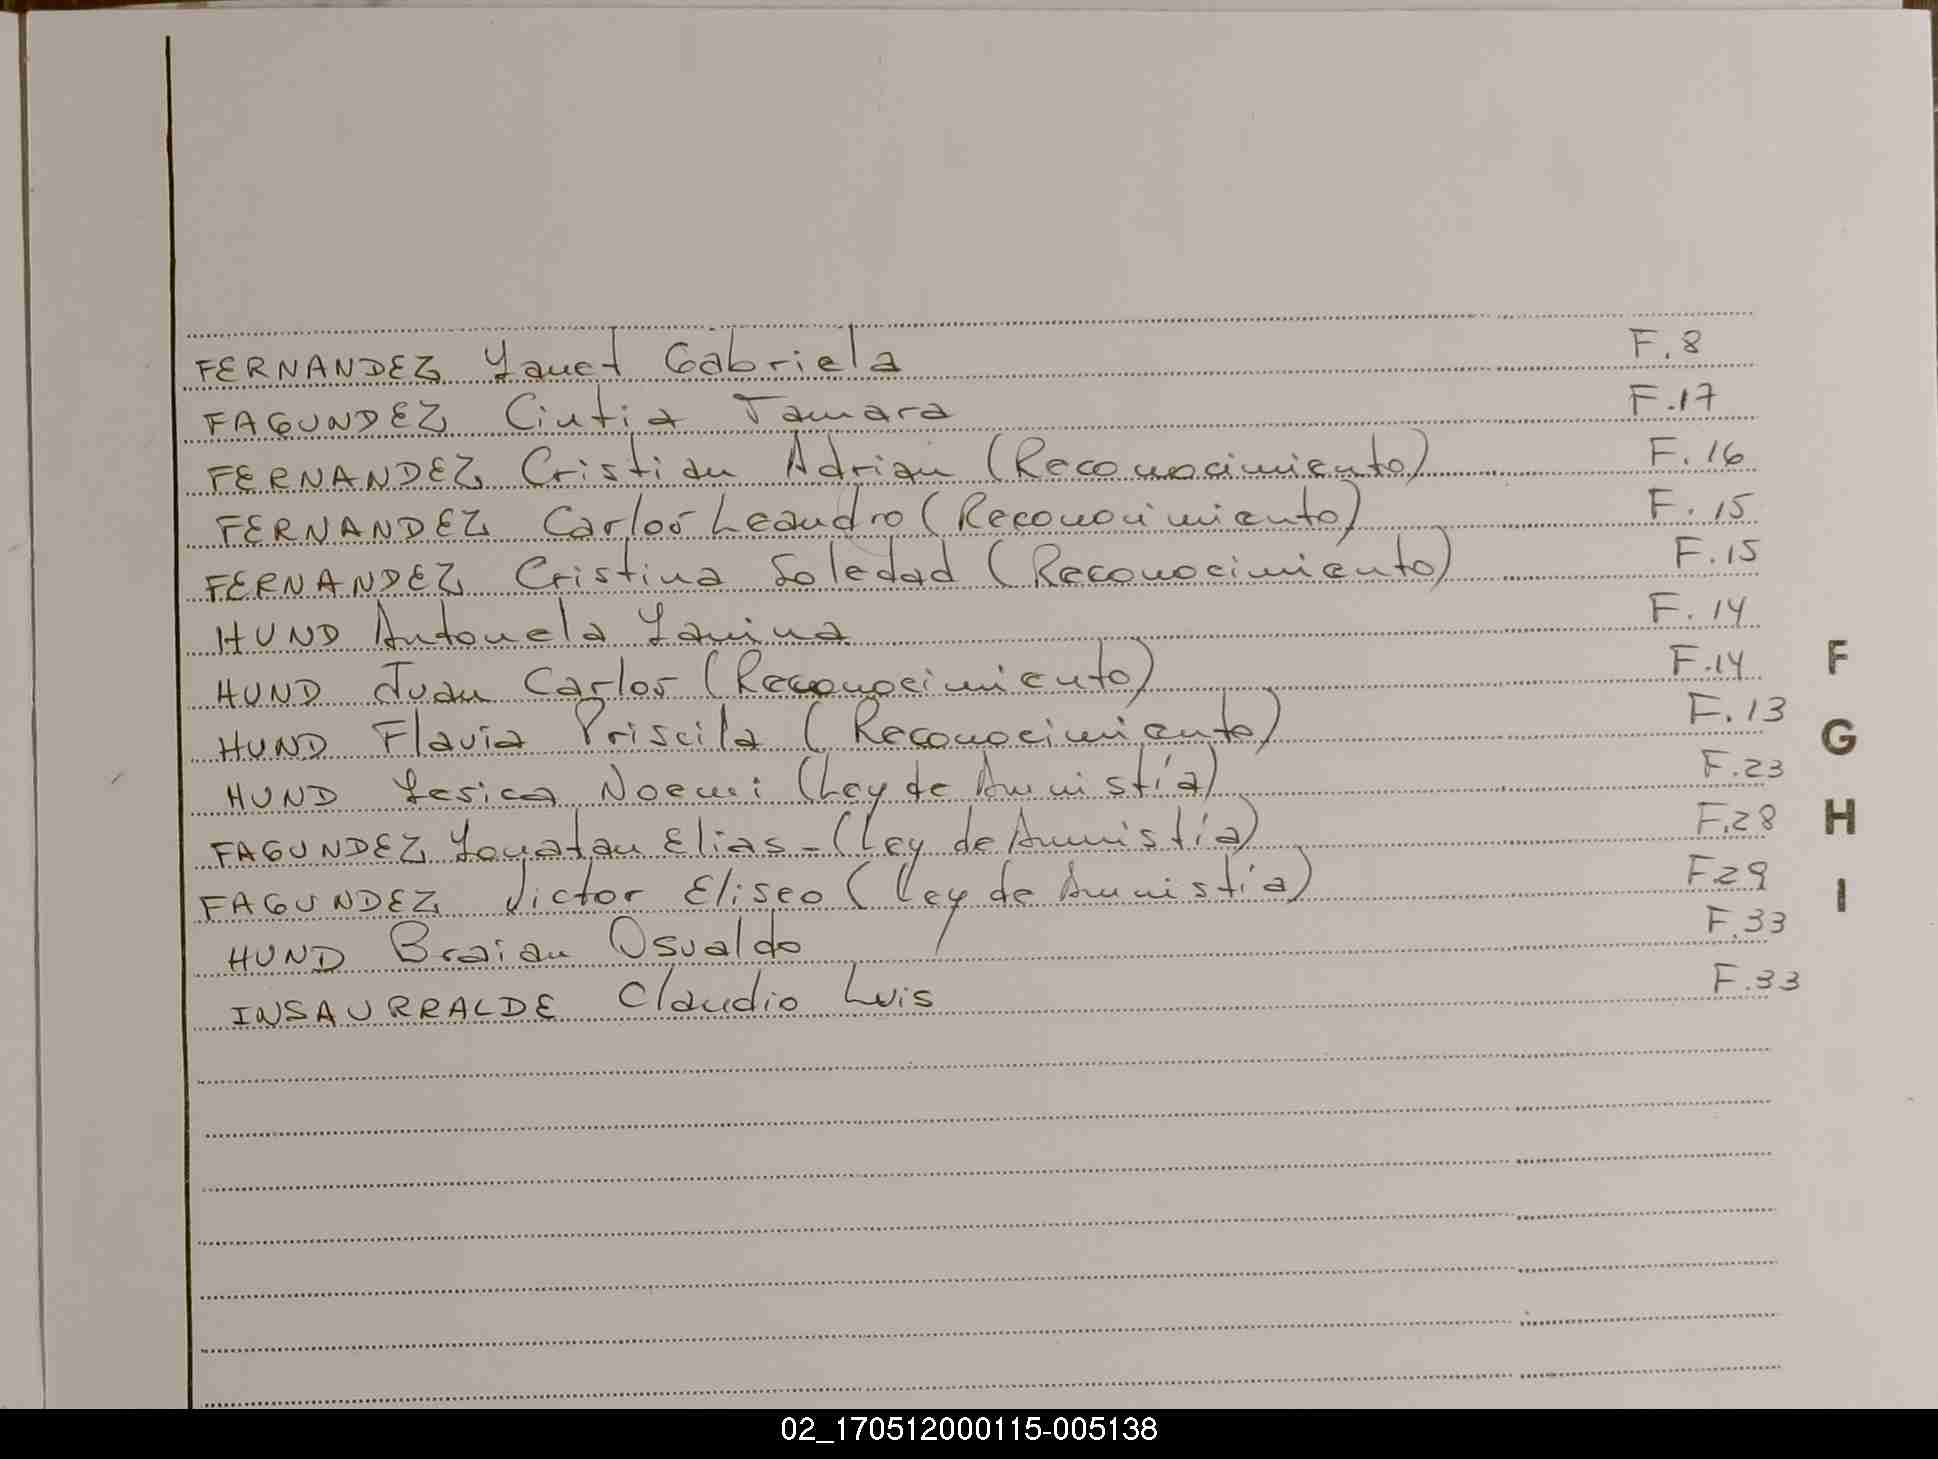 FERNANDEZ Yanet Gabriela F.8
FAGUNDEZ Cintia Tamara F.17
FERNANDEZ Cristian Adrian (Reconocimiento) F.16
FERNANDEZ Carlos Leandro (Reconocimiento) F.15
FERNANDEZ Cristina Soledad (Reconocimiento) F.15
HUND Antonela Yanina F.14
HUND Juan Carlos (Reconocimiento) F.14
HUND Flavia Priscila (Reconocimiento) F.13
HUND Yesica Noemi (Ley de Amnistía) F.23
FAGUNDEZ Yonatan Elias - (Ley de Amnistía) F.28
FAGUNDEZ Victor Eliseo (Ley de Amnistía) F.29
HUND Braian Osvaldo F.33
INSAURRALDE Claudio Luis F.33
F
G
H
I
02_170512000115-005138